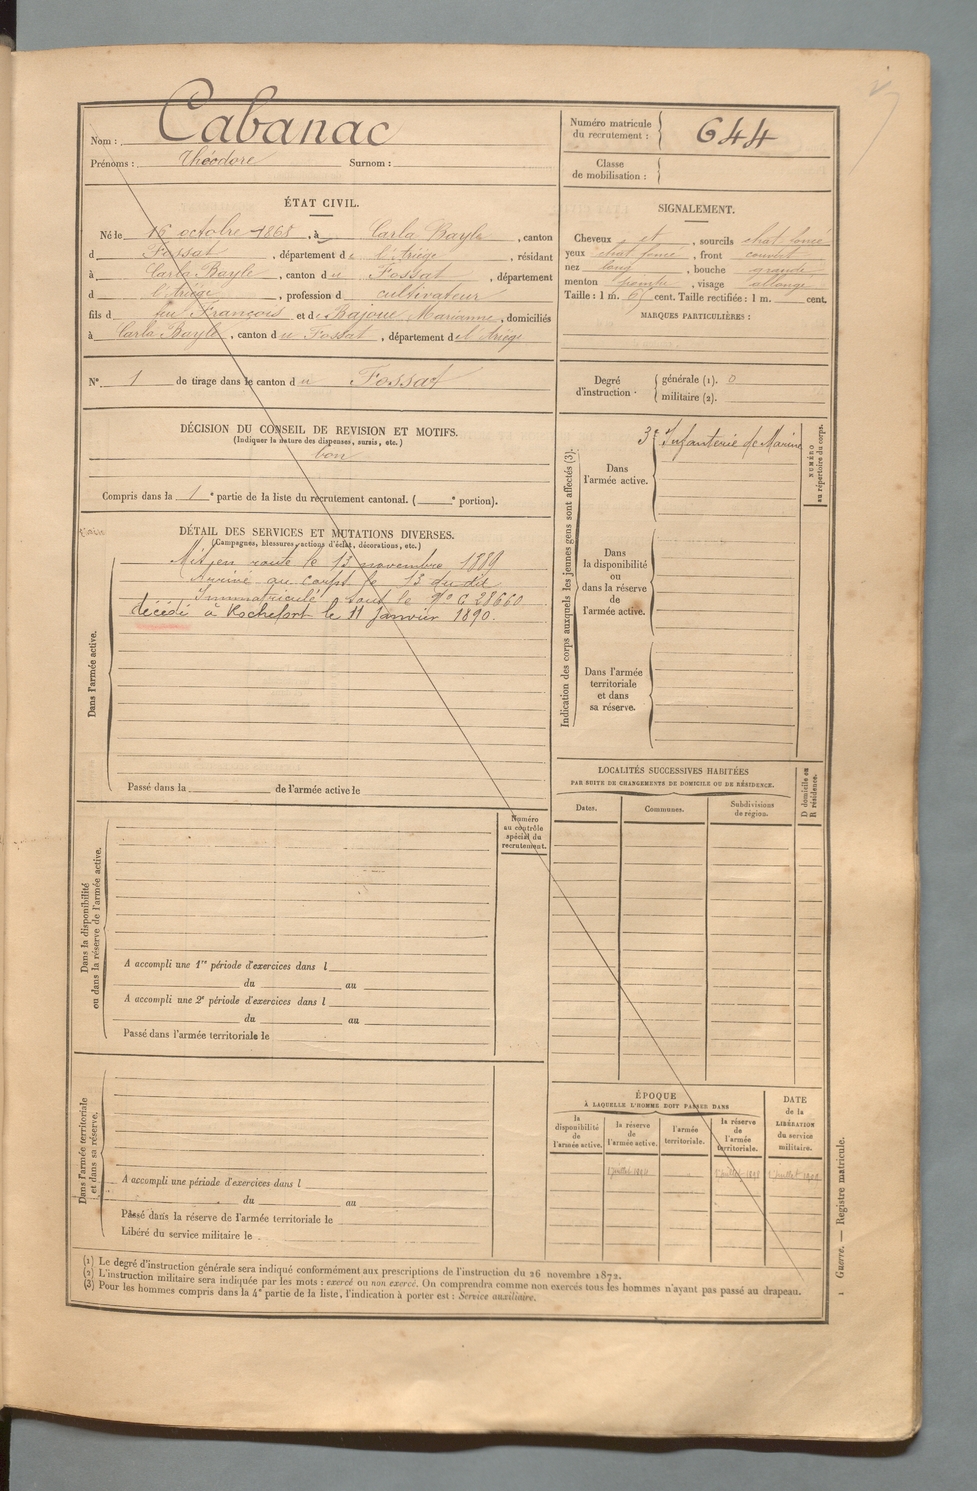 Nom : Cabanac
Prénoms : Théodore Surnom :
Numéro matricule
du recrutement : 644
Classe
de mobilisation :
ÉTAT CIVIL.
Né le 16 octobre 1868, à Carla Bayle, canton
d Fossat, département de l'Ariège, résidant
à Carla Bayle, canton du Fossat, département
d l'Ariège, profession d cultivateur
fils d feu François et de Bajoue Marianne, domiciliés
à Carla Bayle, canton du Fossat, département de l'Ariège
N° 1 de tirage dans le canton du Fossat
DÉCISION DU CONSEIL DE REVISION ET MOTIFS.
(Indiquer la nature des dispenses, sursis, etc.)
bon
Compris dans la 1e partie de la liste du recrutement cantonal. ( e portion).
DÉTAIL DES SERVICES ET MUTATIONS DIVERSES.
(Campagnes, blessures, actions d'éclat, décorations, etc.)
Dans l'armée active.
Mis en route le 13 novembre 1889
Arrivé au corps le 13 du dit
Immatriculé sous le N° C 28660
décédé à Rochefort le 11 janvier 1890.
Passé dans la de l'armée active le
Dans la disponibilité
ou dans la réserve de l'armée active.
Numéro
au contrôle
spécial du
recrutement.
A accompli une 1re période d'exercices dans l
du au
A accompli une 2e période d'exercices dans l
du au
Passé dans l'armée territoriale le
Dans l'armée territoriale
et dans sa réserve.
A accompli une période d'exercices dans l
du au
Passé dans la réserve de l'armée territoriale le
Libéré du service militaire le
SIGNALEMENT.
Cheveux et, sourcils chat foncé
yeux chat foncé, front couvert
nez long, bouche grande
menton, visage allongé
Taille : 1 m. 61 cent. Taille rectifiée : 1 m. cent.
MARQUES PARTICULIÈRES :
Degré
d'instruction.
générale (1). 0
militaire (2).
Indication des corps auxquels les jeunes gens sont affectés (3).
NUMÉRO
au répertoire du corps.
Dans
l'armée active.
3e Infanterie de Marine
Dans
la disponibilité
ou
dans la réserve
de
l'armée active.
Dans l'armée
territoriale
et dans
sa réserve.
LOCALITÉS SUCCESSIVES HABITÉES
PAR SUITE DE CHANGEMENTS DE DOMICILE OU DE RÉSIDENCE.
Dates. Communes. Subdivisions
de région.
D domicile ou
R résidence.
ÉPOQUE
À LAQUELLE L'HOMME DOIT PASSER DANS
la
disponibilité
de
l'armée active.
la réserve
de
l'armée active.
l'armée
territoriale.
la réserve
de
l'armée
territoriale.
DATE
de la
LIBÉRATION
du service
militaire.
Guerre. — Registre matricule.
(1) Le degré d'instruction générale sera indiqué conformément aux prescriptions de l'instruction du 26 novembre 1872.
(2) L'instruction militaire sera indiquée par les mots : exercé ou non exercé. On comprendra comme non exercés tous les hommes n'ayant pas passé au drapeau.
(3) Pour les hommes compris dans la 4e partie de la liste, l'indication à porter est : Service auxiliaire.